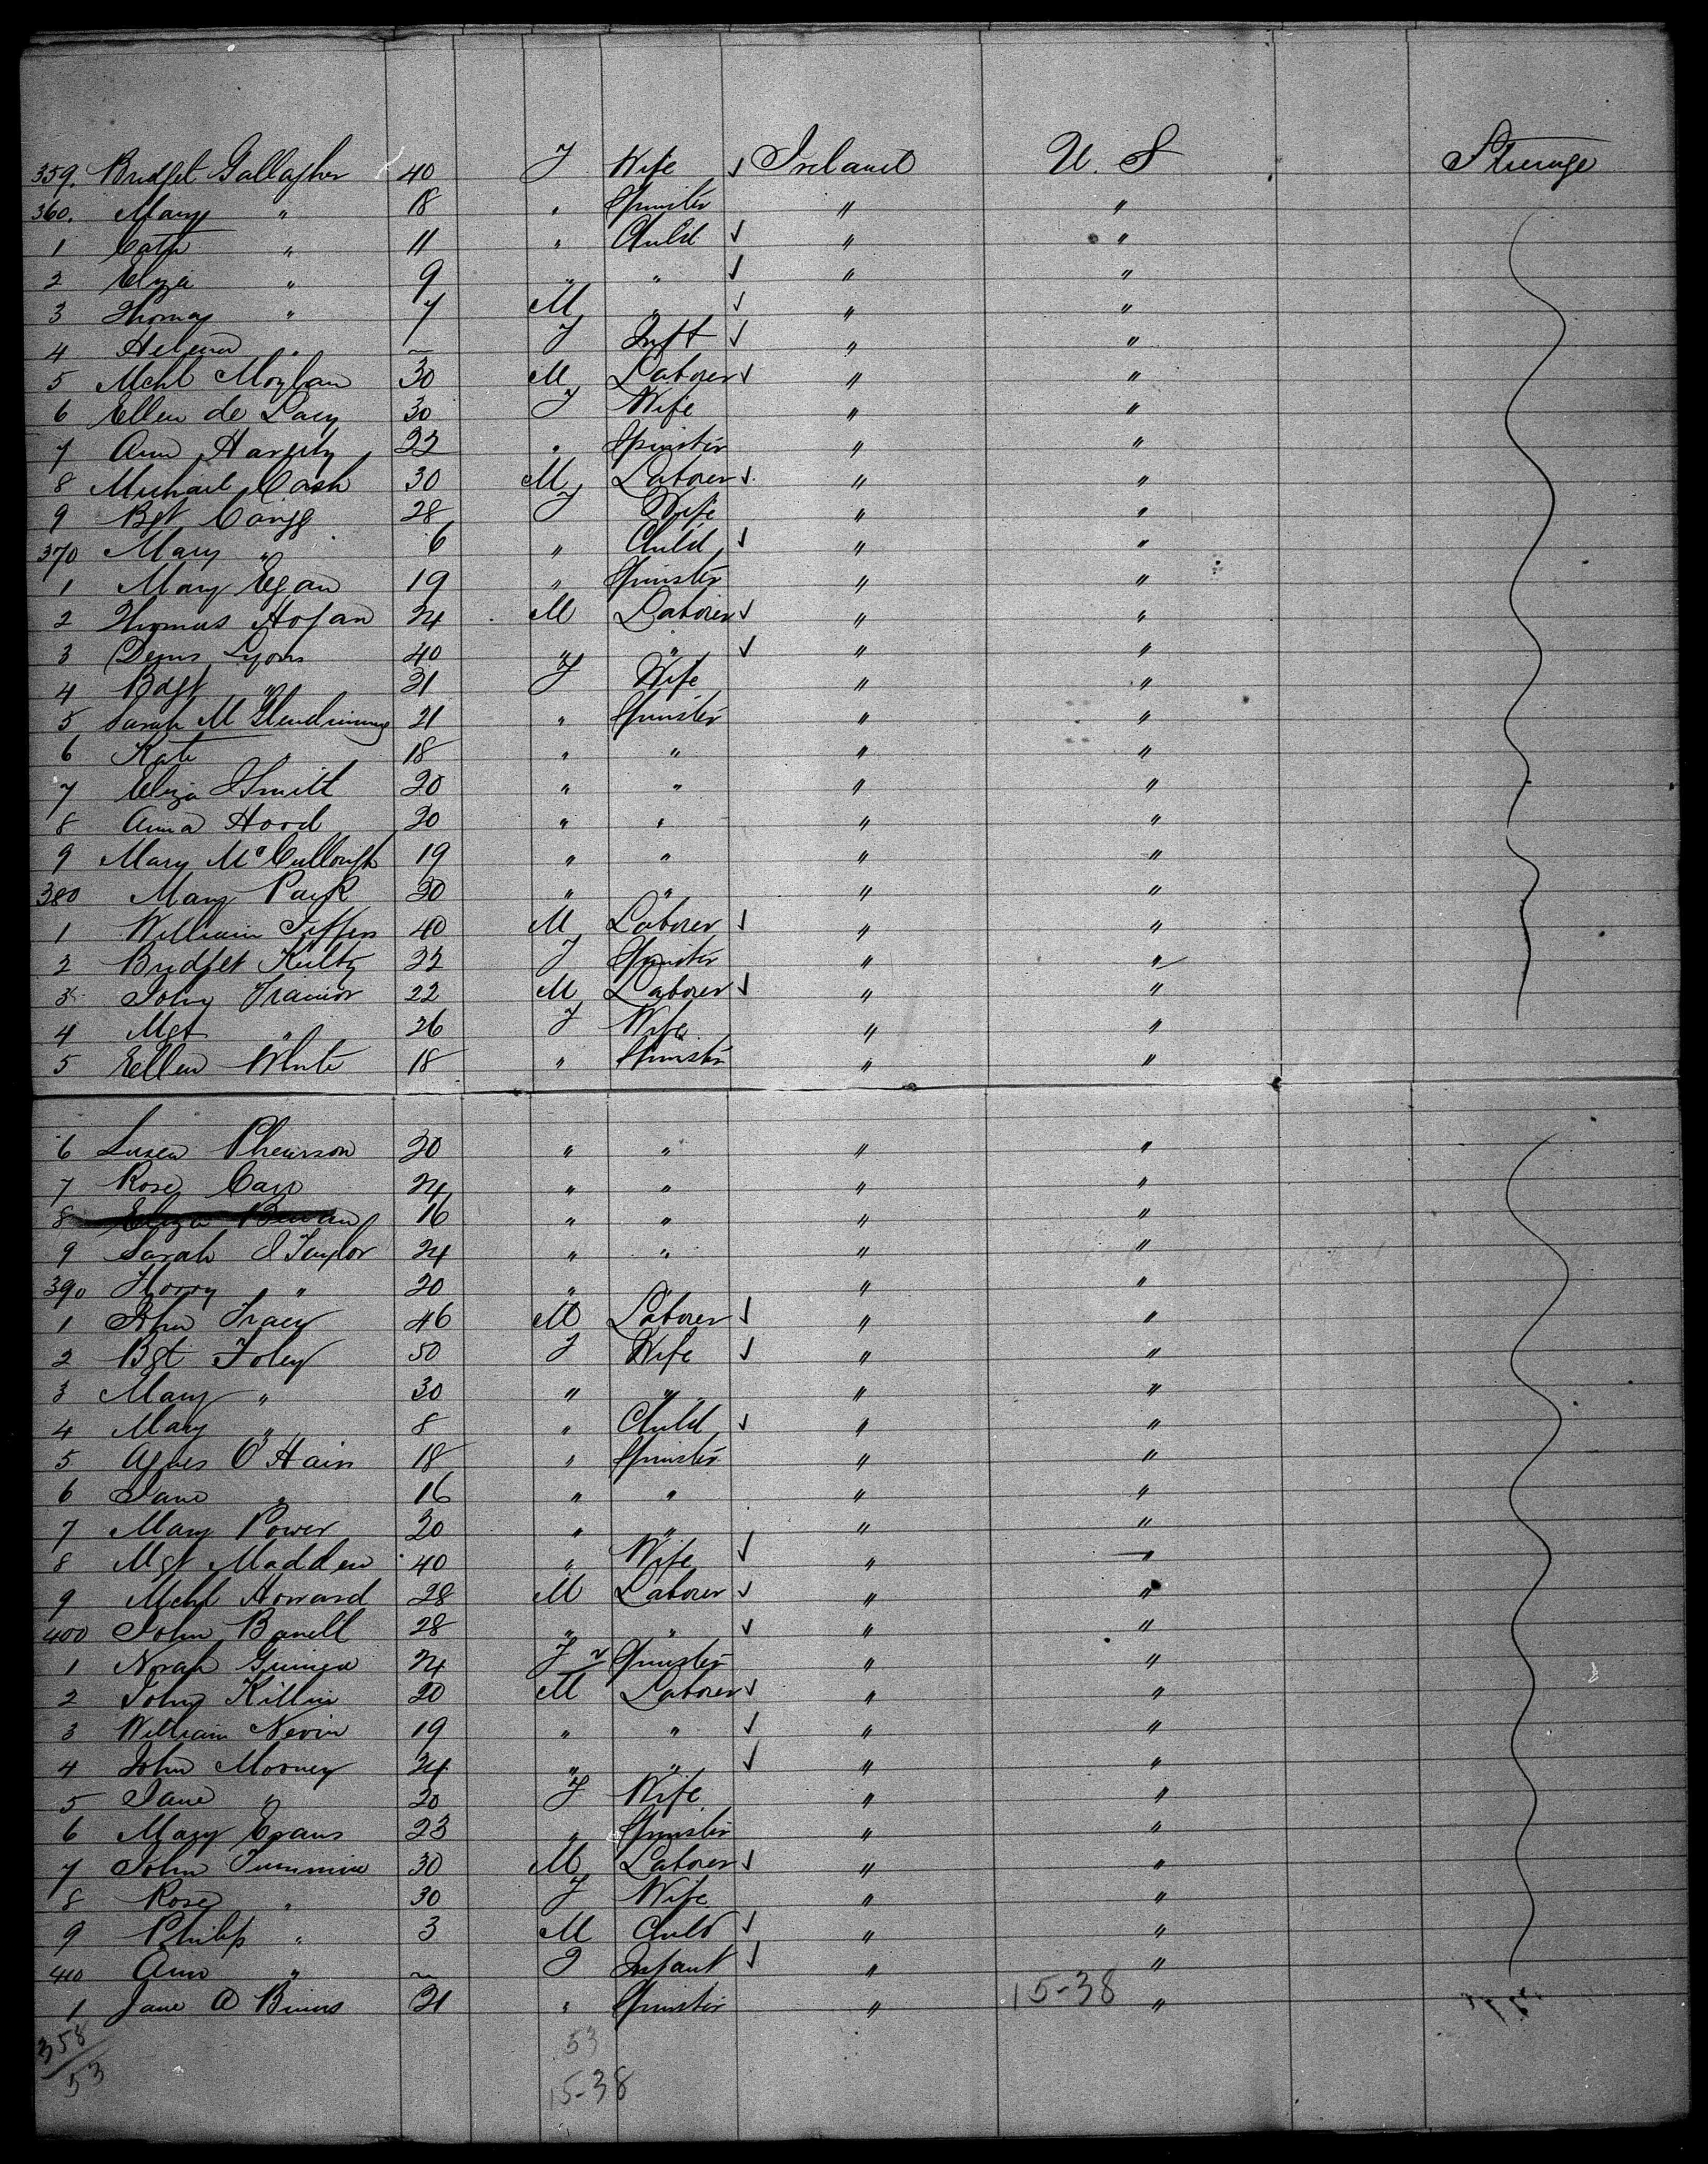 359. Bridget Gallagher 40 F Wife ✓ Ireland U. S Steerage
360. Mary " 18 " Spinster " "
1 Cath " 11 " Child ✓ " "
2 Eliza " 9 " " ✓ " "
3 Thomas " 7 M " ✓ " "
4 Helena " ~ F Inft ✓ " "
5 Mchl Moylan 30 M Laborer ✓ " "
6 Ellen de Lacy 30 F Wife " "
7 Ann 22 " Spinster " "
8 Michael Cash 30 M Laborer ✓ " "
9 Bgt 28 F Wife " "
370 Mary " 6 " Child ✓ " "
1 Mary Egan 19 " Spinster " "
2 Thomas Hogan 24 M Laborer ✓ " "
3 Denis Lyons 40 " " ✓ " "
4 Bdgt " 31 F Wife " "
5 Sarah M Glendinning 21 " Spinster " "
6 Kate 18 " " " "
7 Eliza J Smith 20 " " " "
8 Anna Hood 20 " " " "
9 Mary McCullough 19 " " " "
380 Mary Park 20 " " " "
1 William 40 M Laborer ✓ " "
2 Bridget Kielty 22 F Spinster " "
3 John Trainor 22 M Laborer ✓ " "
4 Mgt " 26 F Wife " "
5 Ellen White 18 " Spinster " "
6 Susan 20 " " " "
7 Rose Carr 24 " " " "
8 Eliza 16 " " " "
9 Sarah J Taylor 24 " " " "
390 " 20 " " " "
1 John Tracy 46 M Laborer ✓ " "
2 Bgt Foley 50 F Wife ✓ " "
3 Mary " 30 " " " "
4 Mary " 8 " Child ✓ " "
5 Agnes O'Hair 18 " Spinster " "
6 Jane " 16 " " " "
7 Mary Power 20 " " " "
8 Mgt Madden 40 " Wife ✓ " "
9 Mchl Howard 28 M Laborer ✓ " "
400 John 28 " " ✓ " "
1 Norah 24 F Spinster " "
2 John Killin 20 M Laborer ✓ " "
3 William Nevin 19 " " ✓ " "
4 John Mooney 24 " " ✓ " "
5 Jane " 20 F Wife " "
6 Mary Evans 23 " Spinster " "
7 John 30 M Laborer ✓ " "
8 Rose " 30 F Wife " "
9 Philip " 3 M Child ✓ " "
410 Ann " ~ F Infant ✓ " "
1 Jane A Binns 21 " Spinster " 15-38 "
358
53
53
15-38